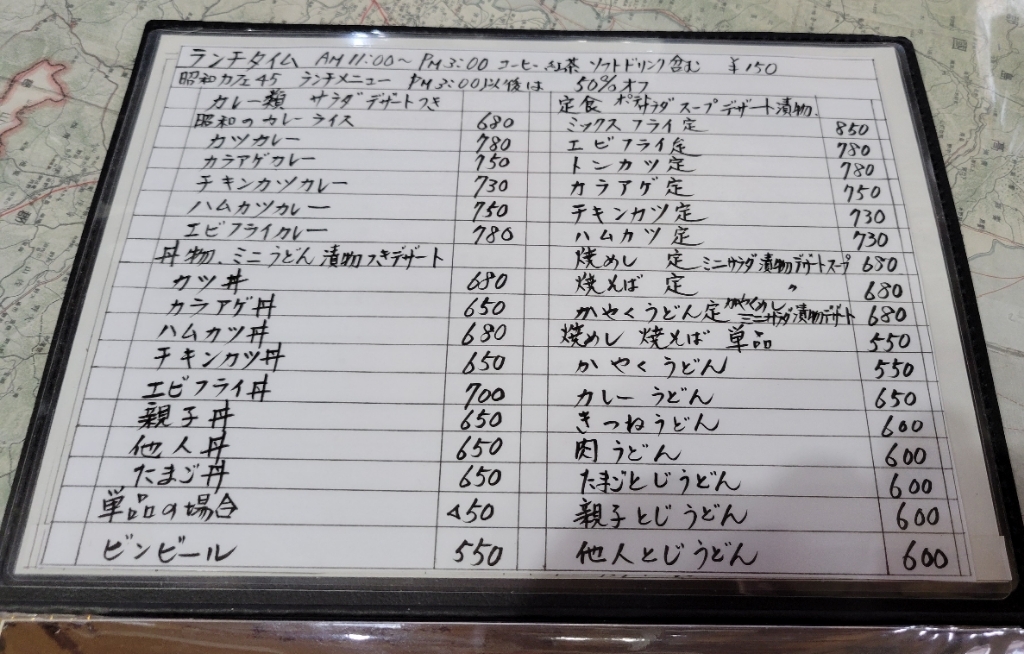 ランチタイム AM11:00～PM3:00 コーヒー 紅茶 ソフトドリンク含む ¥150
昭和カフェ45 ランチメニュー PM3:00以後は 50%オフ
カレー類 サラダデザートつき
昭和のカレーライス 680
カツカレー 780
カラアゲカレー 750
チキンカツカレー 730
ハムカツカレー 750
エビフライカレー 780
丼物、ミニうどん漬物つきデザート
カツ丼 680
カラアゲ丼 650
ハムカツ丼 680
チキンカツ丼 650
エビフライ丼 700
親子丼 650
他人丼 650
たまご丼 650
単品の場合 △50
ビンビール 550
定食 ポテトサラダ スープ デザート漬物、
ミックスフライ定 850
エビフライ定 780
トンカツ定 780
カラアゲ定 750
チキンカツ定 730
ハムカツ定 730
焼めし 定 ミニサラダ漬物デザートスープ 680
焼そば 定 〃 680
かやくうどん定 かやくめしミニサラダ漬物デザート 680
焼めし 焼そば 単品 550
かやくうどん 550
カレーうどん 650
きつねうどん 600
肉うどん 600
たまごとじうどん 600
親子とじうどん 600
他人とじうどん 600